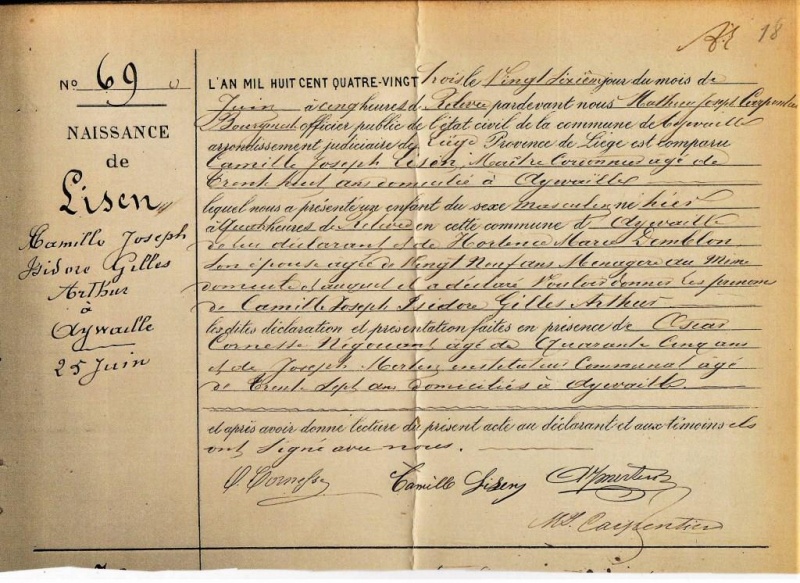 18
No 69
NAISSANCE
de
Lisen
Camille Joseph
Isidore Gilles
Arthur
à
Aywaille
25 Juin
L'AN MIL HUIT CENT QUATRE-VINGT trois le Vingt sixième jour du mois de
Juin à cinq heures de Relevée pardevant nous Mathieu Joseph Carpentier
Bourgmestre officier public de l'état civil de la commune de Aywaille
arrondissement judiciaire de Liège Province de Liège est comparu
Camille Joseph Lisen, Maître Cordonnier agé de
Trente huit ans domicilié à Aywaille
lequel nous a présenté un enfant du sexe masculin né hier
à quatre heures de Relevée en cette commune d' Aywaille
de lui déclarant et de Hortence Marie Demblon
son épouse agée de Vingt Neuf ans Menagere au Meme
domicile et auquel il a déclaré Vouloir donner les prenoms
de Camille Joseph Isidore Gilles Arthur
les dites déclaration et présentation faites en présence de Oscar
Cornesse Négociant âgé de Quarante Cinq ans
et de Joseph instituteur Communal âgé
de Trente Sept ans domiciliés à Aywaille
et après avoir donné lecture du présent acte au déclarant et aux témoins ils
ont Signé avec nous.
O. Cornesse Camille Lisen
M. J. Carpentier